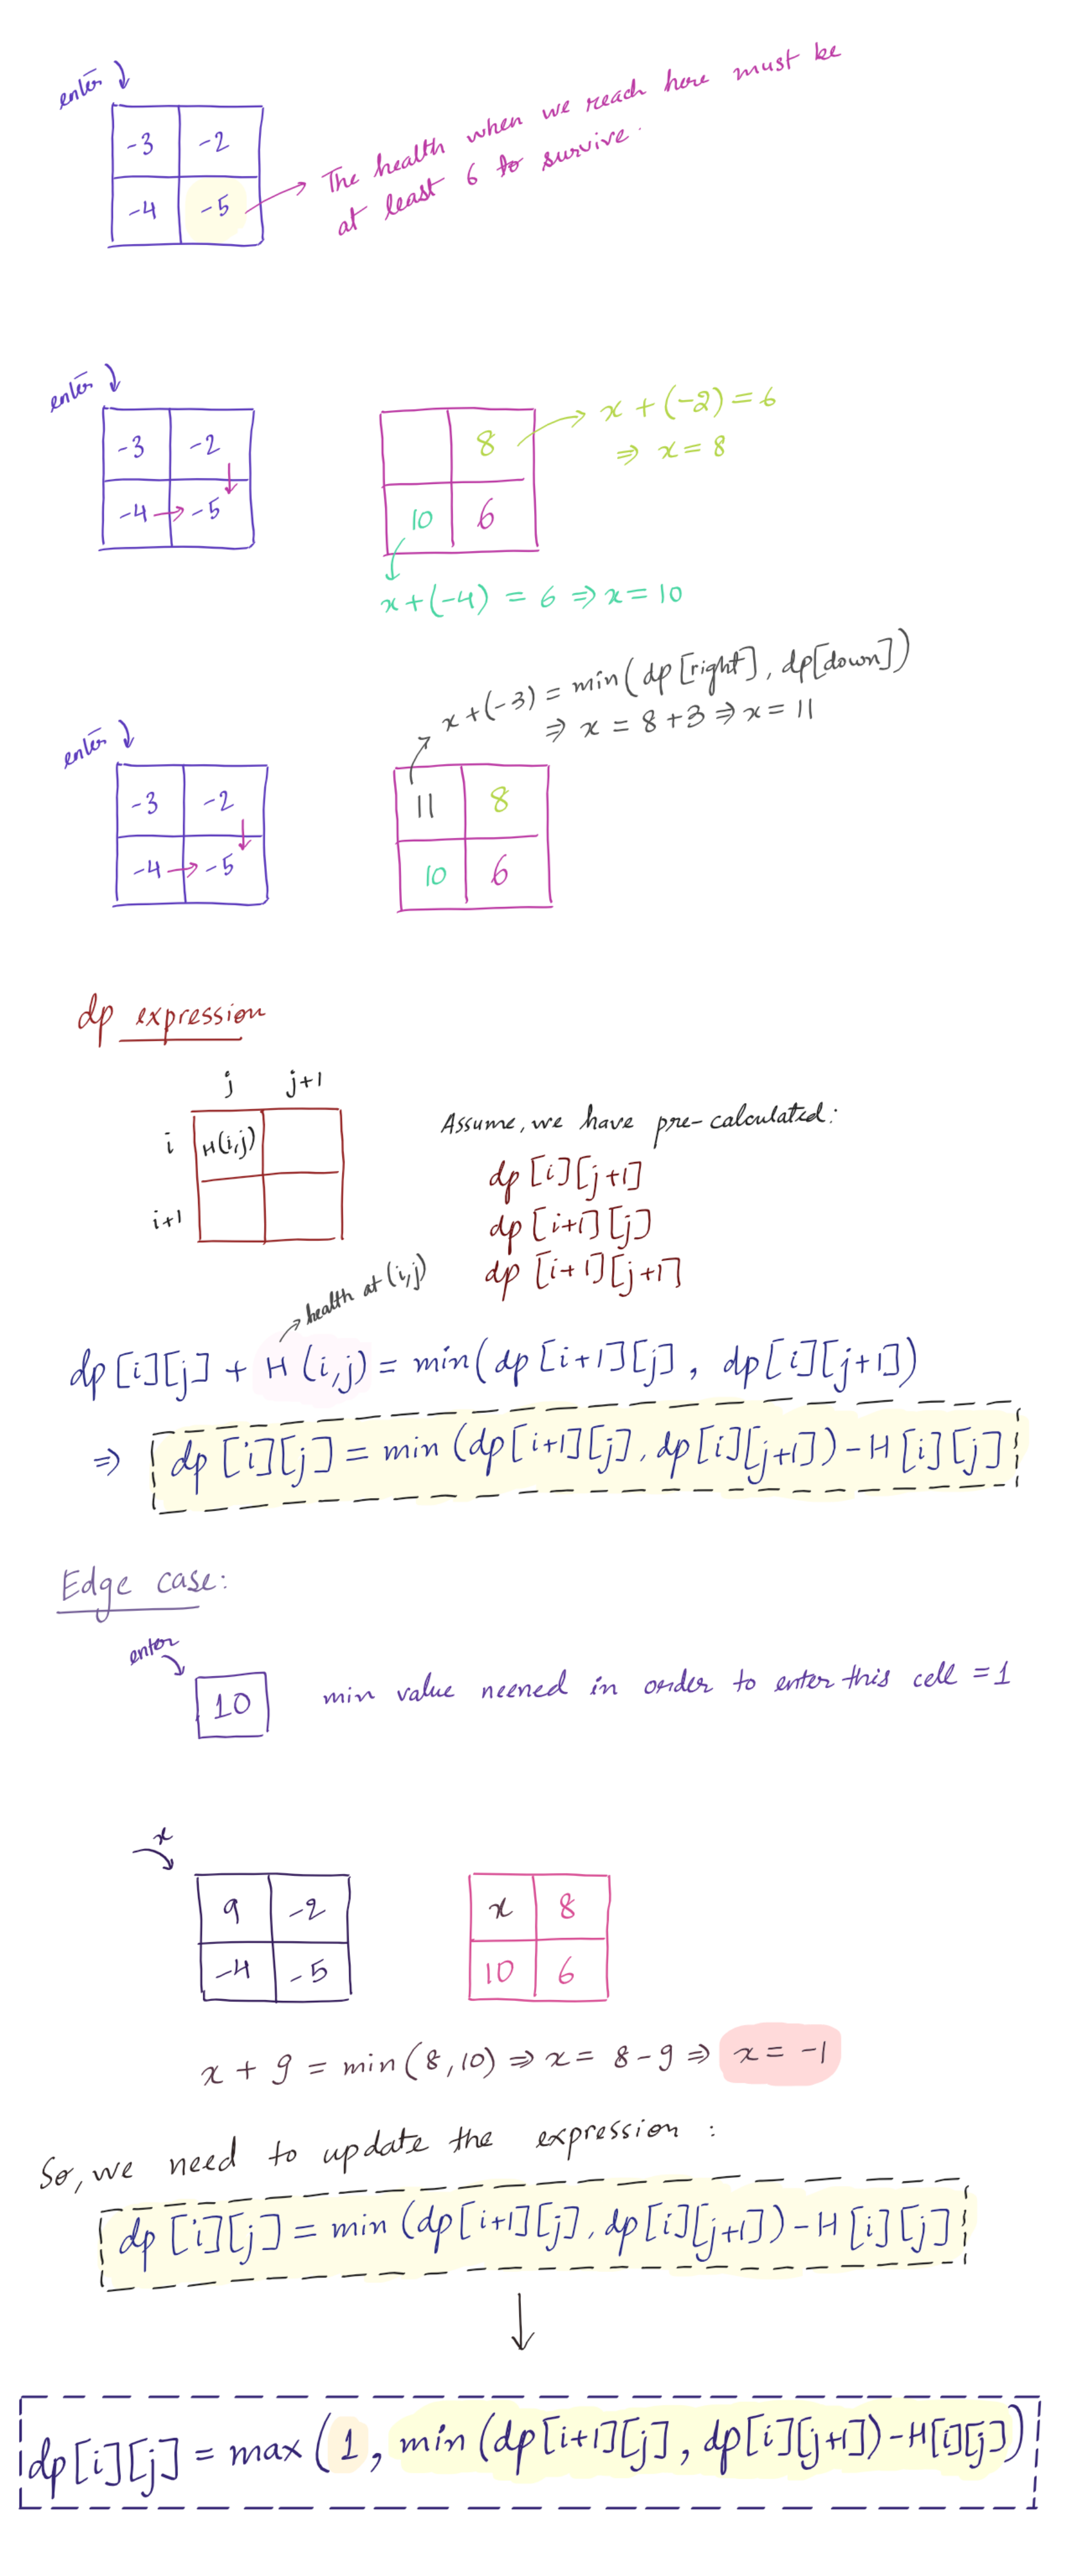 enter
-3 -2
-4 -5
The health when we reach here must be
at least 6 to survive.
enter
-3 -2
-4 -5
8
10 6
x + (-2) = 6
⇒ x = 8
x + (-4) = 6 ⇒ x = 10
x + (-3) = min(dp[right], dp[down])
⇒ x = 8+3 ⇒ x = 11
enter
-3 -2
-4 -5
11 8
10 6
dp expression
j j+1
i H(i,j)
i+1
Assume, we have pre-calculated:
dp[i][j+1]
dp[i+1][j]
dp[i+1][j+1]
health at (i,j)
dp[i][j] + H(i,j) = min(dp[i+1][j], dp[i][j+1])
⇒ dp[i][j] = min(dp[i+1][j], dp[i][j+1]) - H[i][j]
Edge case:
enter
10
min value neened in order to enter this cell = 1
x
9 -2
-4 -5
x 8
10 6
x + 9 = min(8,10) ⇒ x = 8-9 ⇒ x = -1
So, we need to update the expression :
dp[i][j] = min(dp[i+1][j], dp[i][j+1]) - H[i][j]
dp[i][j] = max(1, min(dp[i+1][j], dp[i][j+1]) - H[i][j])